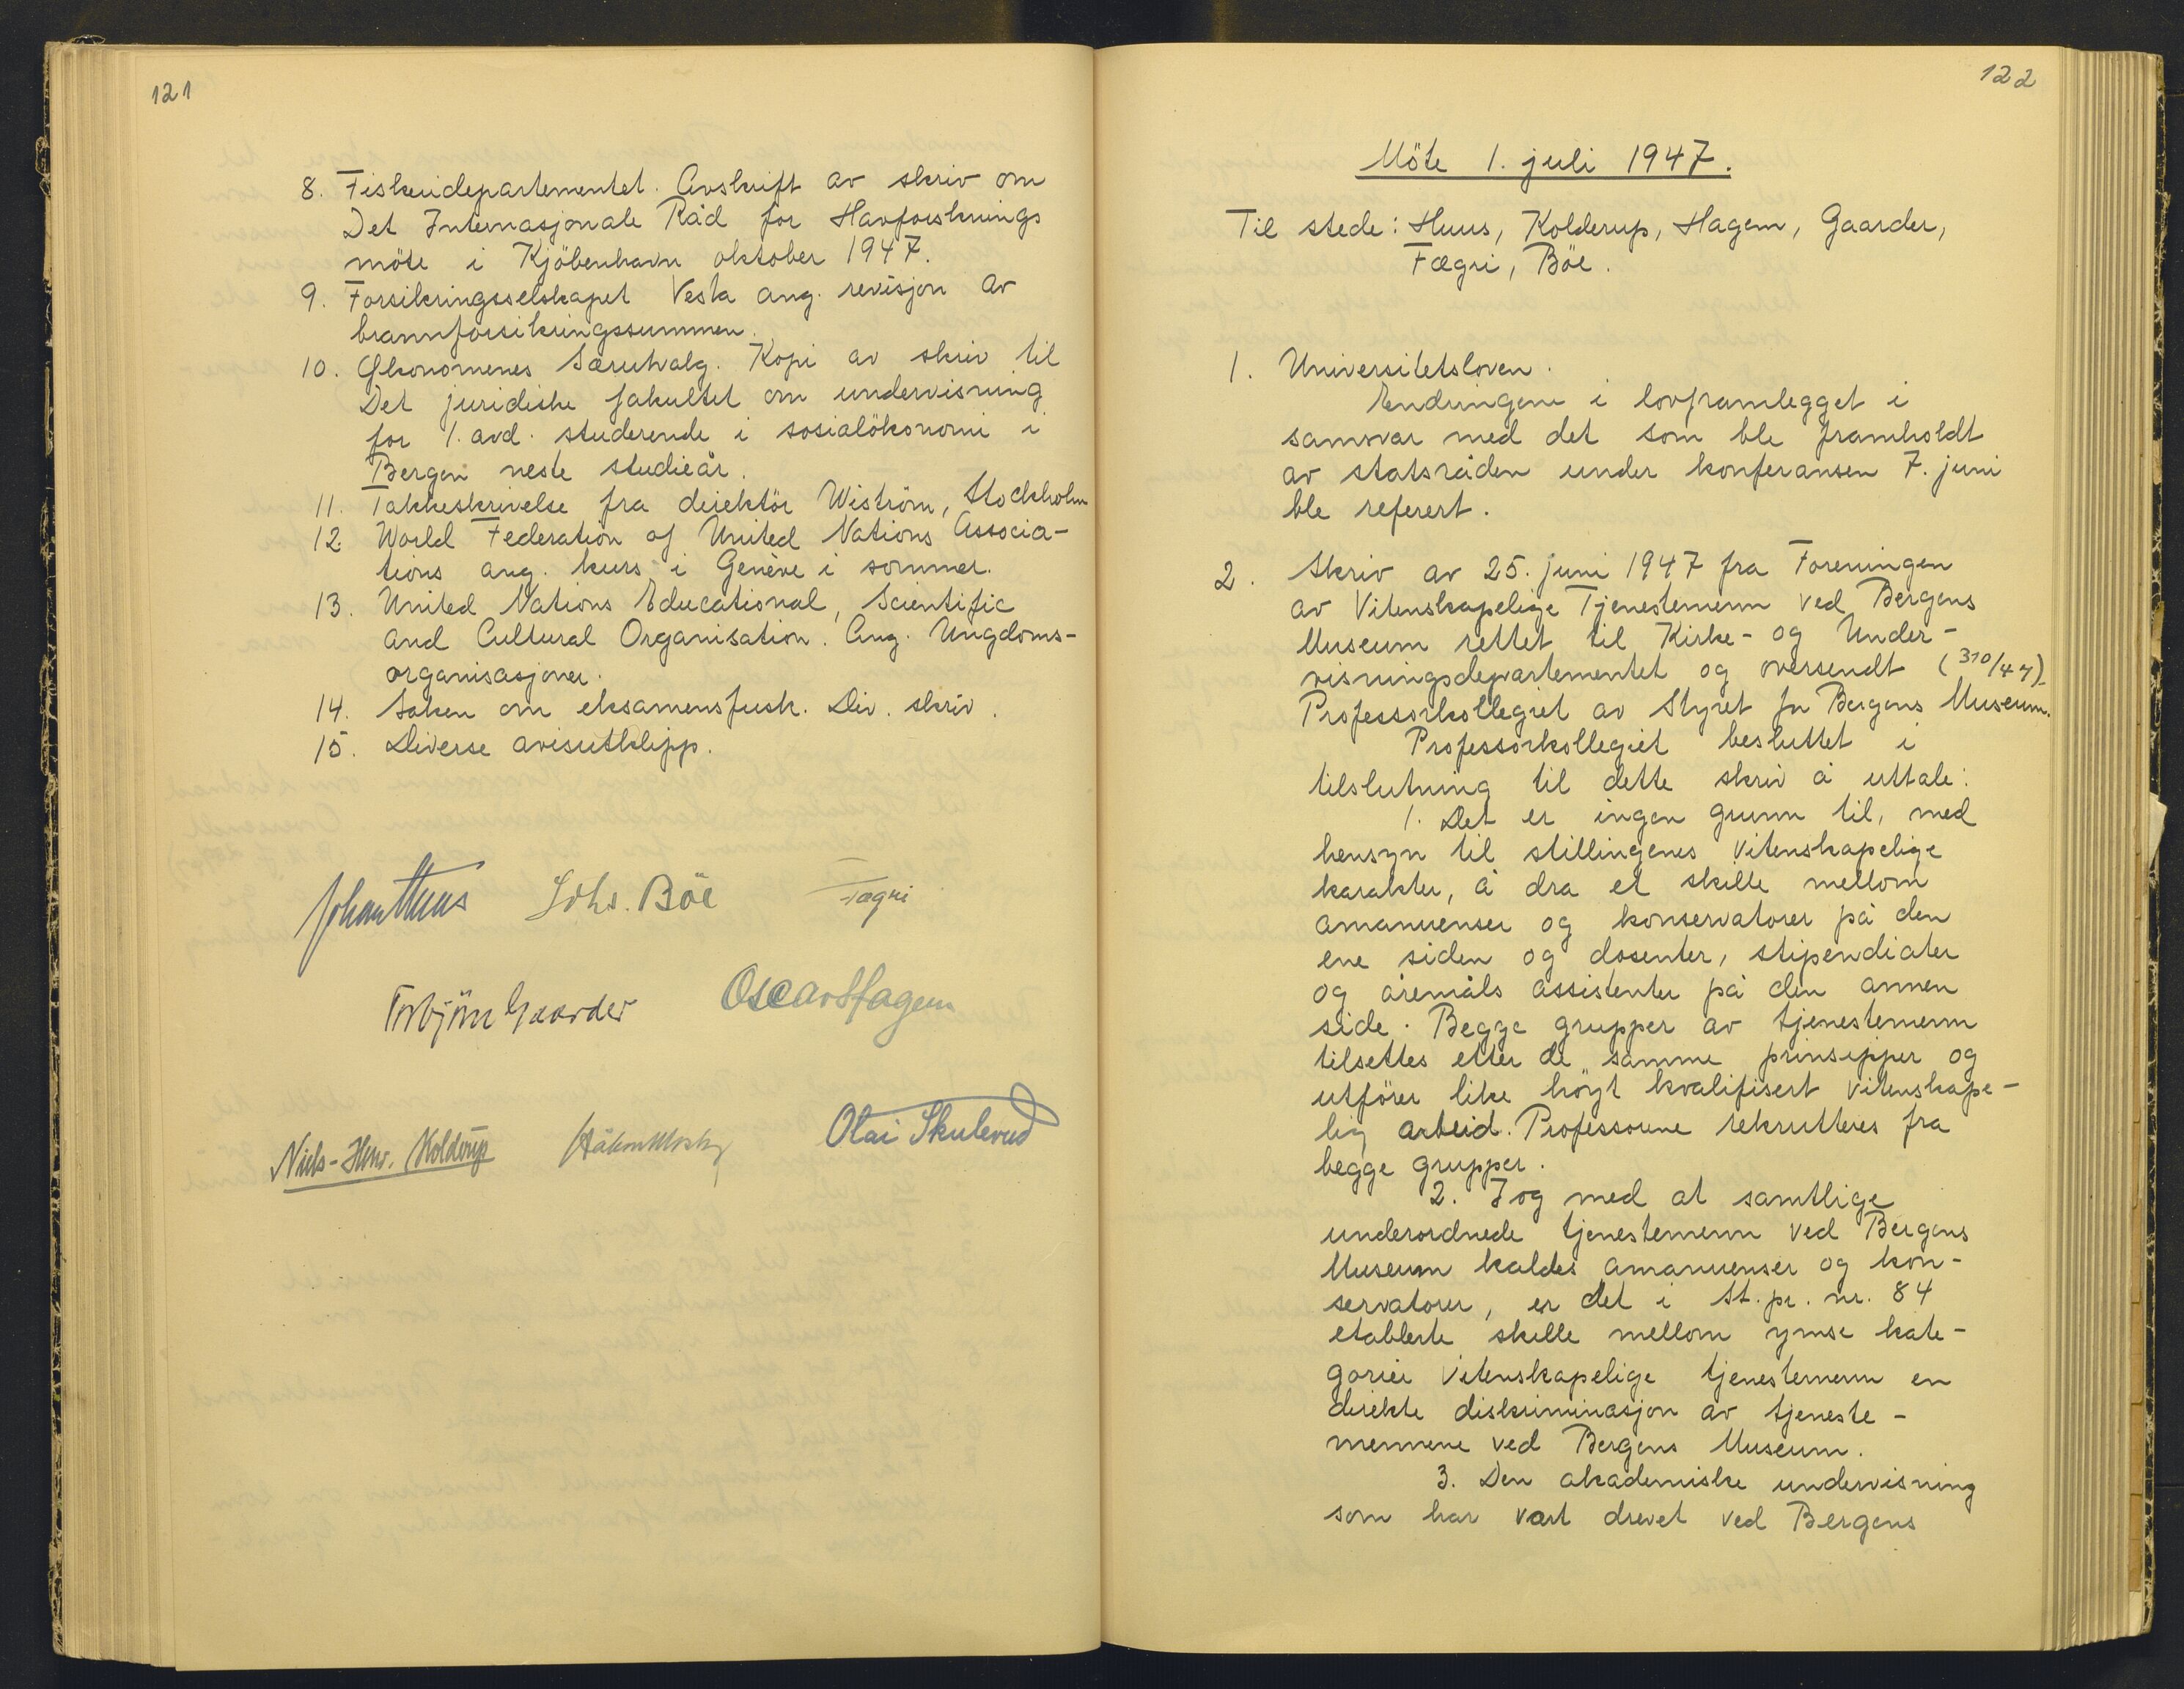 121
8. Fiskeridepartementet. Avskrift av skriv om
Det Internasjonale Råd for Havforsknings
möte i Kjöbenhavn oktober 1947.
9. Forsikringsselskapet Vesta ang. revisjon av
brannforsikringssummen.
10. Økonomenes Særutvalg. Kopi av skriv til
Det juridiske fakultet om undervisning
for 1. avd. studerende i sosialökonomi i
Bergen neste studieår.
11. Takkeskrivelse fra direktör Wiström, Stockholm
12. World Federation of United Nations Associa-
tions ang. kurs i Genève i sommer.
13. United Nations Educational, Scientific
and Cultural Organisation. Ang. Ungdoms-
organisasjoner.
14. Saken om eksamensfusk. Div. skriv.
15. Diverse avisutklipp.
Johan Huus Johs. Böe Fægri
Torbjörn Gaarder Oscar Hagem
Niels-Henr. Kolderup Håkon Mosby Olai Skulerud
122
Möte 1. juli 1947.
Til stede: Huus, Kolderup, Hagem, Gaarder,
Fægri, Böe.
1. Universitetsloven.
Endringene i lovframlegget i
samsvar med det som ble framholdt
av statsråden under konferansen 7. juni
ble referert.
2. Skriv av 25. juni 1947 fra Foreningen
av Vitenskapelige Tjenestemenn ved Bergens
Museum rettet til Kirke- og Under-
visningsdepartementet og oversendt (310/47)
Professorkollegiet av Styret for Bergens Museum.
Professorkollegiet besluttet i
tilslutning til dette skriv å uttale:
1. Det er ingen grunn til, med
hensyn til stillingenes vitenskapelige
karakter, å dra et skille mellom
amanuenser og konservatorer på den
ene siden og dosenter, stipendiater
og åremåls assistenter på den annen
side. Begge grupper av tjenestemenn
tilsettes etter de samme prinsipper og
utfører like höyt kvalifisert vitenskape-
lig arbeid. Professorene rekrutteres fra
begge grupper.
2. I og med at samtlige
underordnede tjenestemenn ved Bergens
Museum kaldes amanuenser og kon-
servatorer, er det i St. pr. nr. 84
etablerte skille mellom ymse kate-
gorier vitenskapelige tjenestemenn en
direkte diskriminasjon av tjeneste-
mennene ved Bergens Museum.
3. Den akademiske undervisning
som har vært drevet ved Bergens